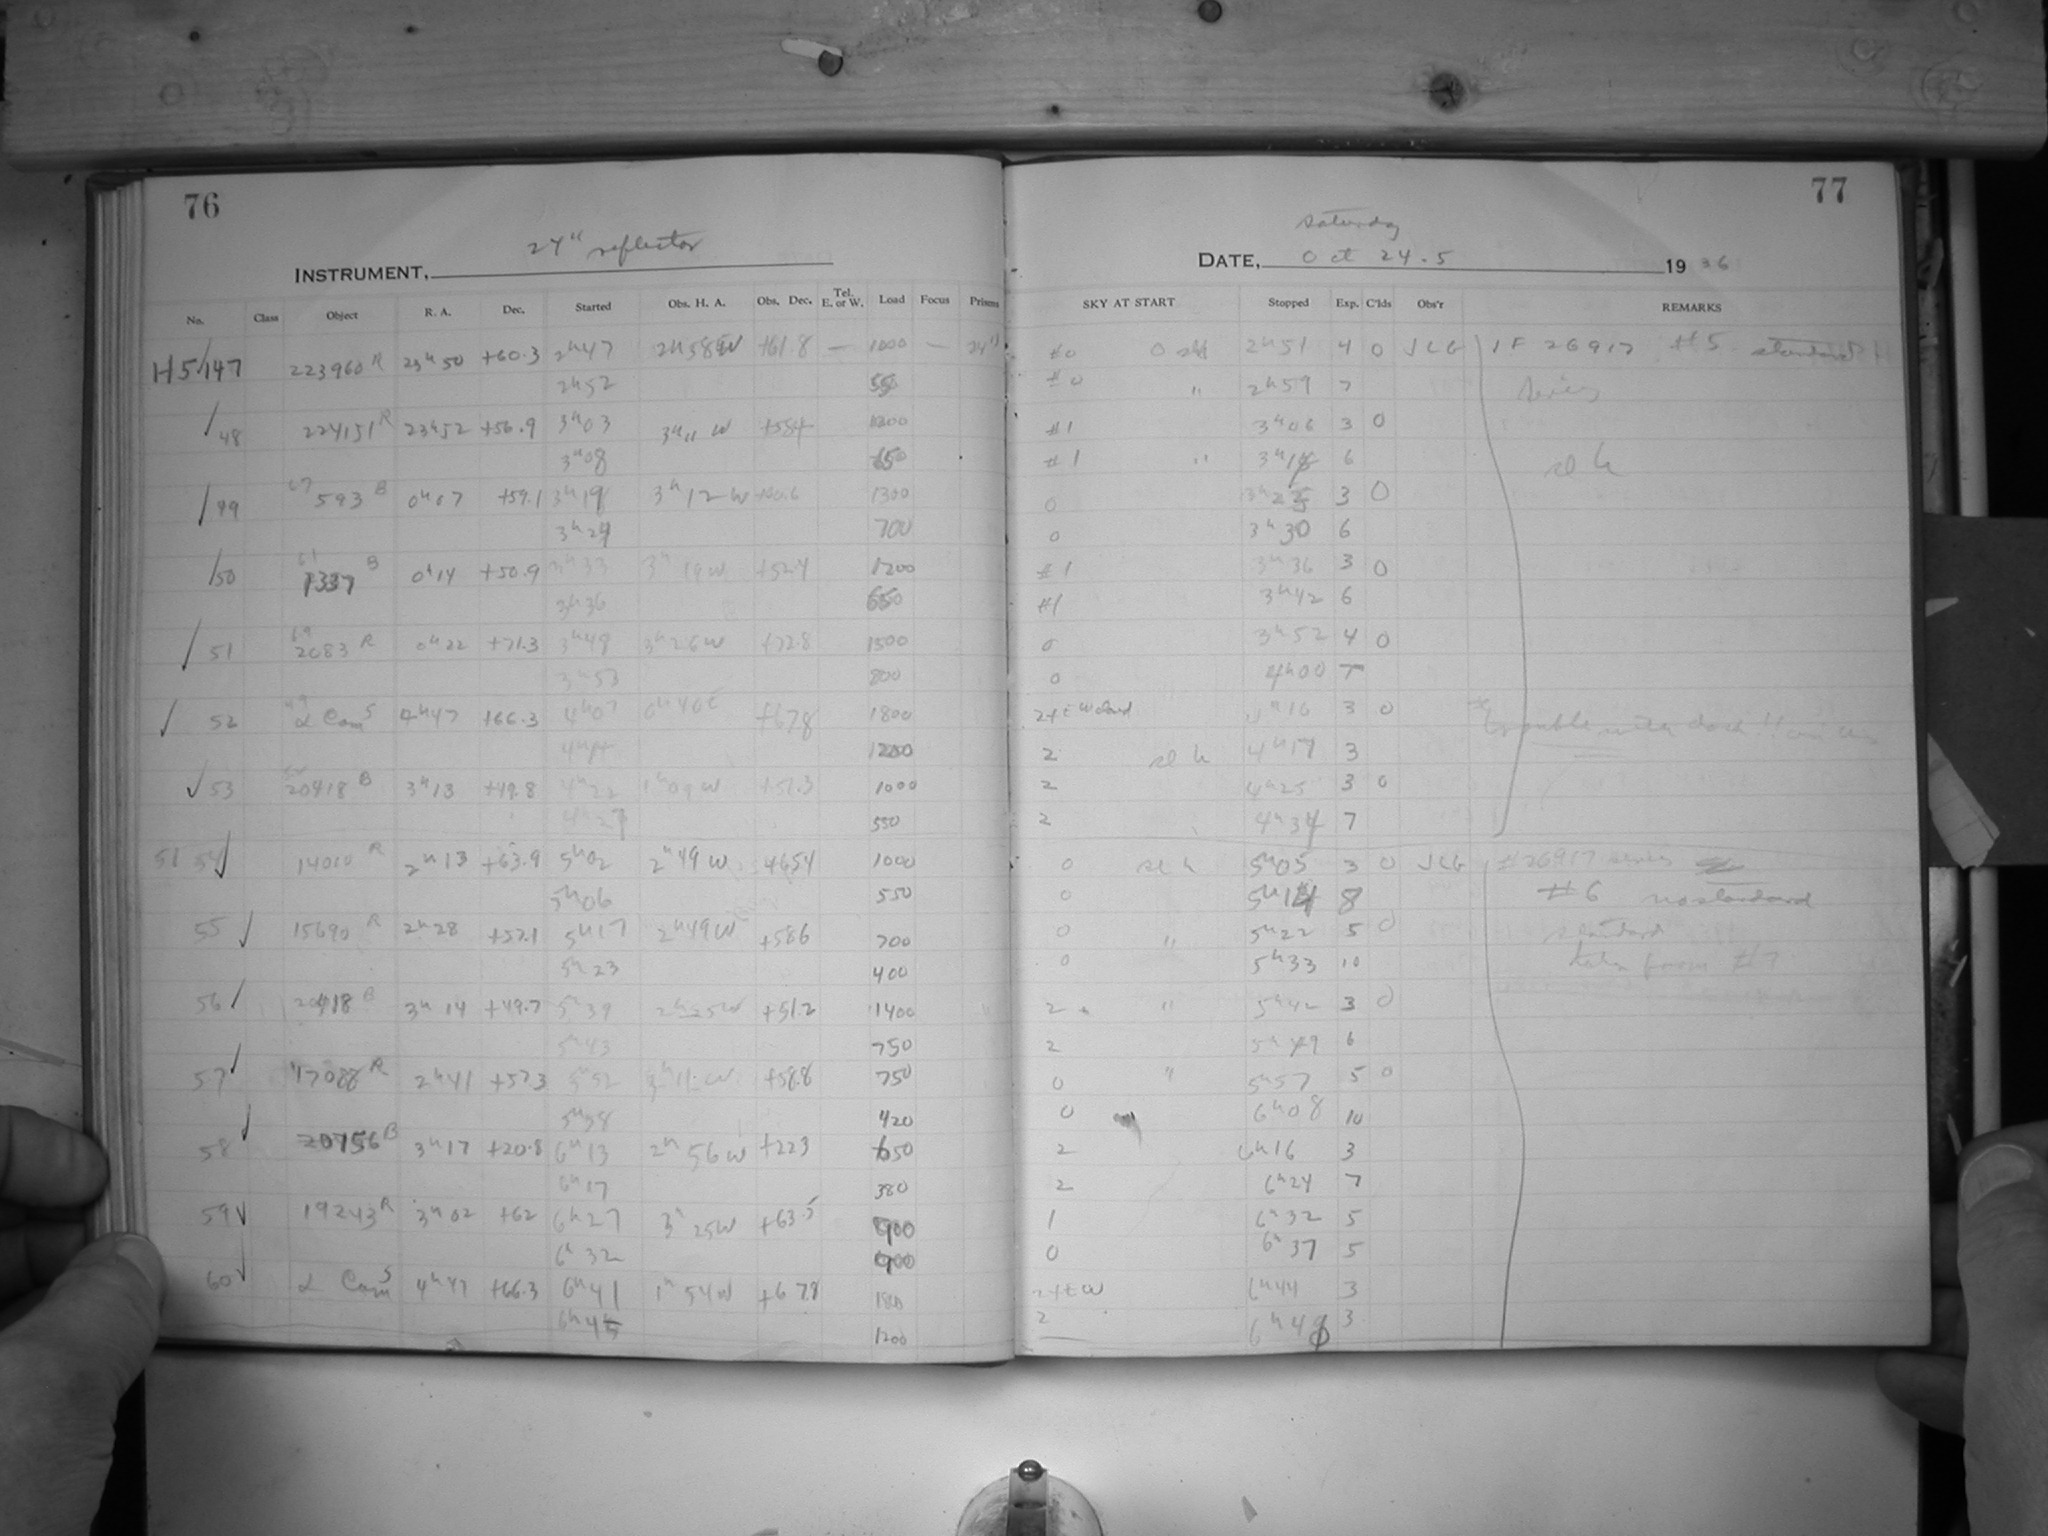 76
24" reflector
INSTRUMENT,
No. Class Object R. A. Dec. Started Obs. H. A. Obs. Dec. Tel. E. or W. Load Focus Prisms
H5/147 223960 R 23h50 +60.3 2h47 2h58W +61.8 — 1000 — 24"
2h52 550
/48 224151 R 23h52 +56.9 3h03 3h11 W +584 1200
3h08 650
/49 67 593 B 0h07 +59.1 3h19 3h12W +60.6 1300
3h24 700
/50 61 1337 B 0h14 +50.9 3h33 3h19W +52.4 1200
3h36 650
/ 51 69 2083 R 0h22 +71.3 3h49 3h26W +72.8 1500
3h53 800
✓ 52 49 α Cam S 4h47 +66.3 4h07 0h40E +678 1800
4h14 1200
✓ 53 20418 B 3h13 +49.8 4h22 1h09W +51.3 1000
4h27 550
51 54 ✓ 14010 R 2h13 +63.9 5h02 2h49W +654 1000
5h06 550
55 ✓ 15690 R 2h28 +57.1 5h17 2h49W +586 700
5h23 400
56 ✓ 20418 B 3h14 +49.7 5h39 2h25W +51.2 1400
5h43 750
57 ✓ 17088 R 2h41 +573 5h52 3h11W +58.8 750
5h58 420
58 ✓ 20756 B 3h17 +20.8 6h13 2h56W +223 650
6h17 380
59 ✓ 19243 R 3h02 +62 6h27 3h25W +63.5 900
6h32 900
60 ✓ α Cam S 4h47 +66.3 6h41 1h54W +678 1800
6h45 1200
77
Saturday
DATE, Oct 24.5 1936
SKY AT START Stopped Exp. C'lds Obs'r REMARKS
#0 0 slh 2h51 4 0 JLG IF 26917 #5 standard
#0 " 2h59 7 series
#1 3h06 3 0
#1 " 3h14 6 sl h
0 3h23 3 0
0 3h30 6
#1 3h36 3 0
#1 3h42 6
0 3h52 4 0
0 4h00 7
2+tW cloud 4h10 3 0 * trouble with clock !!
2 sl h 4h17 3
2 4h25 3 0
2 4h34 7
0 sl h 5h05 3 0 JLG #26917 series
0 5h14 8 #6 no standard
0 " 5h22 5 0 standard
0 5h33 10 taken from #7
2 " 5h42 3 0
2 5h49 6
0 " 5h57 5 0
0 6h08 10
2 6h16 3
2 6h24 7
1 6h32 5
0 6h37 5
2+tW 6h44 3
2 6h48 3